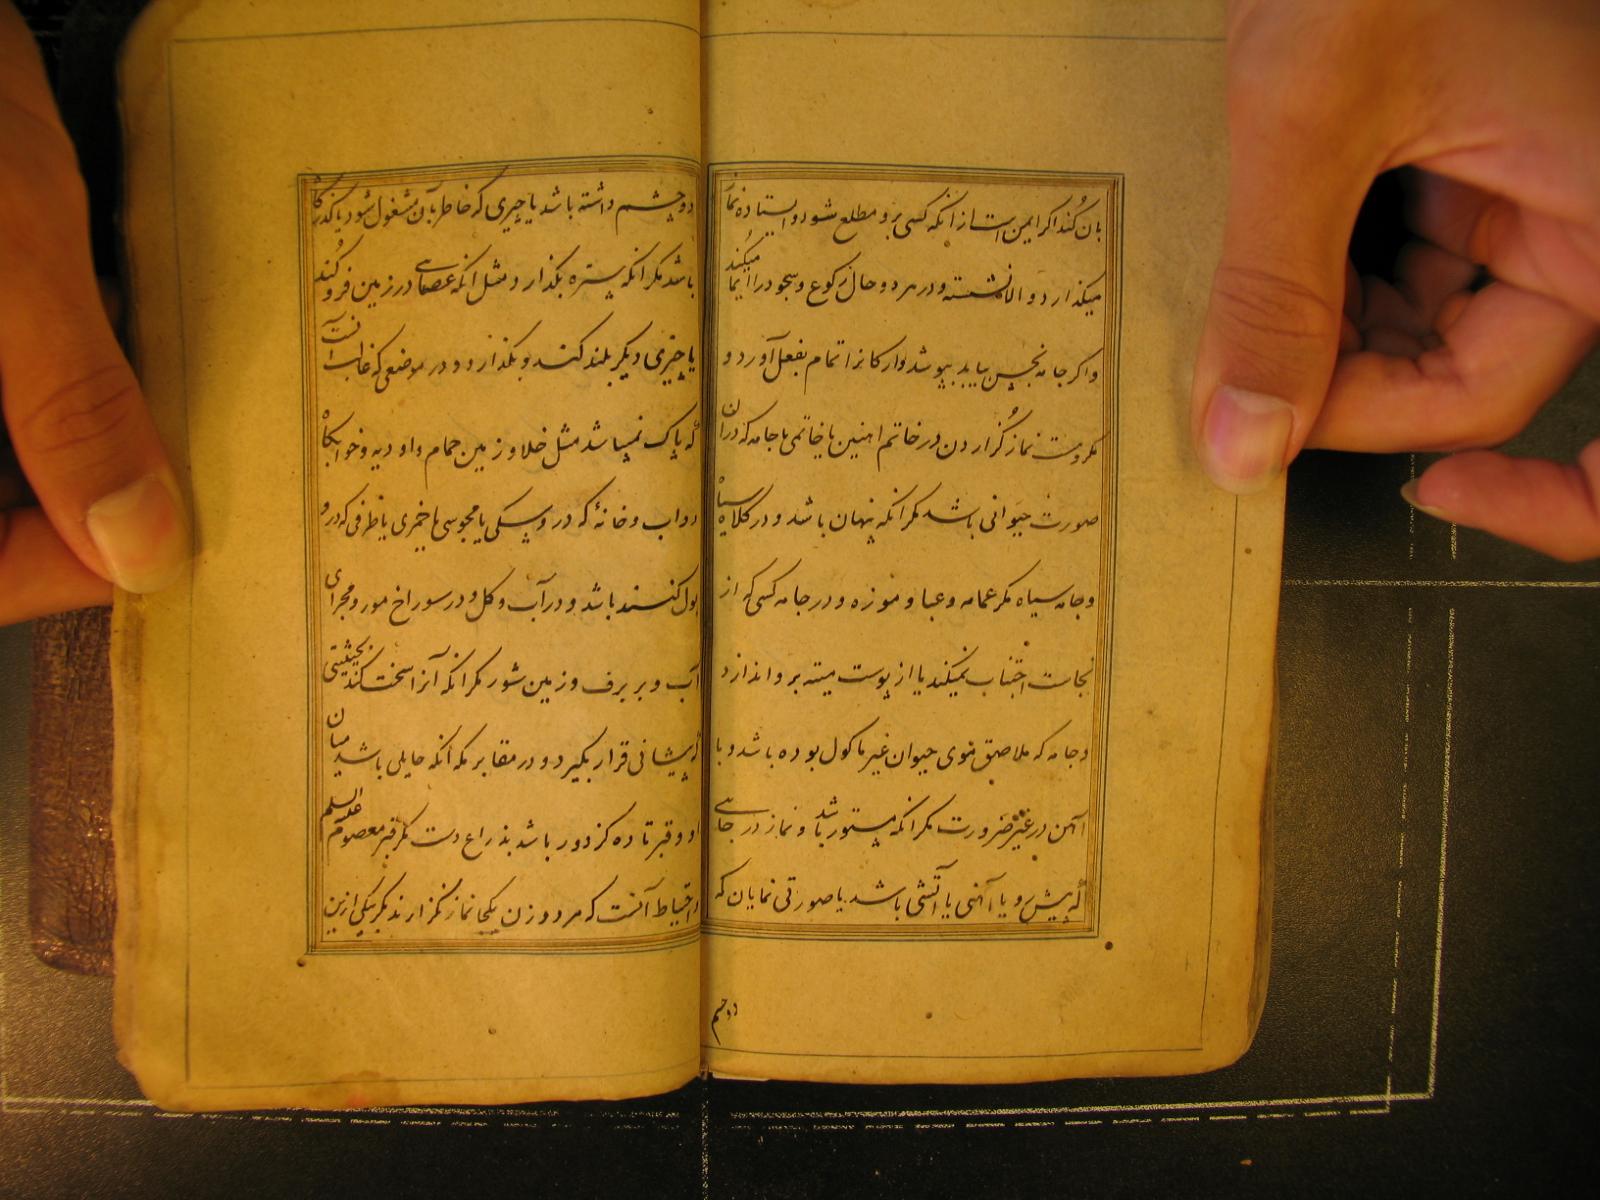 بان کند اکر ایمن است از انکه کسی برو مطلع شود و ایستاده نما
میکذارد و الا نشسته و در هر دو حال رکوع و سجود را ایما میکند
و اکر جامه نجس بیابد بپوشد و ارکانرا تمام بفعل آورد و
مکروهست نماز گزاردن در خاتم اهنین یا خاتمی یا جامه که دران
صورت حیوانی باشد مکر انکه پنهان باشد و در کلاه سیاه
و جامه سیاه مکر عمامه و عبا و موزه و در جامه کسی که از
نجاست اجتناب نمیکند یا از پوست میته پروا ندارد
و جامه که ملاصق موی حیوان غیر ماکول بوده باشد و با
آهن در غیر ضرورت مکر انکه مستور باشد و نماز در جاسے
که پیش رو یا آهنی یا آتشی باشد یا صورتی نمایان که
دو چشم
دو چشم داشته باشد یا چیزی که خاطر بآن مشغول شود یا کذرکاه
باشد مکر انکه بستره بکذارد مثل انکه عصاسے در زمین فرو کند
یا چیزی دیکر بلند کند و بکذارد و در موضعی که غالب آنست
که پاک نمیباشد مثل خلا و زمین حمام و اودیه و خوابکاه
دواب و خانهٔ که در و سکی یا مجوسی یا خمری یا ظرفی که درو
بول کنند باشد و در آب و کل و در سوراخ مور و مجرای
آب و بر برف و زمین شور مکر انکه آنرا سخت کند بحیثیتی
که پیشانی قرار بکیرد و در مقابر مکه انکه حایلی باشد میان
او و قبر تا ده کز دور باشد بذراع دست مکر قبر معصوم علیه السلم
و احتیاط آنست که مرد و زن یکجا نماز نکزارند مکر یکی ازین